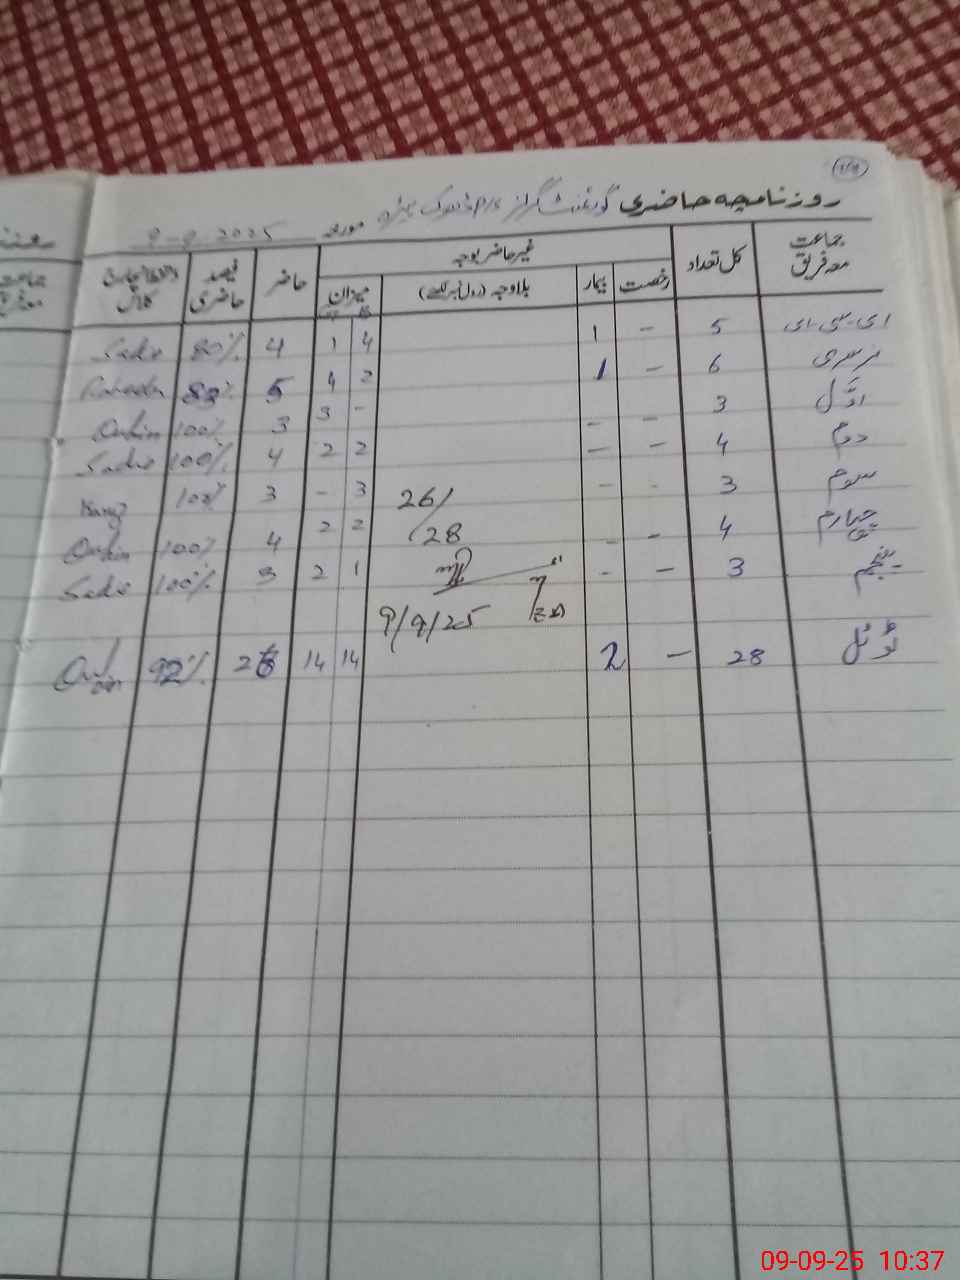 روزنامچہ حاضری گورنمنٹ گرلز P/S ڈھوک
مورخہ 9-9-2025
جماعت معہ فریق کل تعداد غیر حاضر بوجہ حاضر فیصد حاضری دستخط انچارج کلاس
رخصت بیمار بلاوجہ (رول نمبر لکھیے) میزان
ای-سی-ای 5 - 1 4 1 4 80% Sadia
نرسری 6 - 1 2 4 5 83%
اوّل 3 - - - 3 3 100%
دوم 4 - - 2 2 4 100% Sadia
سوم 3 - - 3 - 3 100%
چہارم 4 - - 2 2 4 100%
پنجم 3 - - 1 2 3 100% Sadia
26/
28
9/9/25
ٹوٹل 28 - 2 14 14 26 92%
09-09-25 10:37